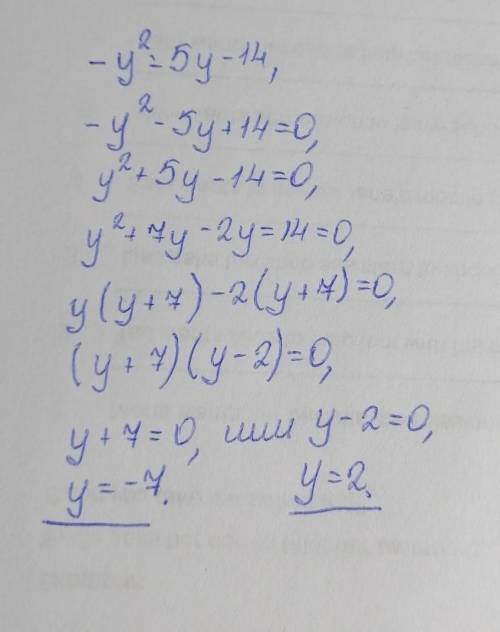 -y²=5y-14,
-y²-5y+14=0,
y²+5y-14=0,
y²+7y-2y=14=0,
y(y+7)-2(y+7)=0,
(y+7)(y-2)=0,
y+7=0, или y-2=0,
y=-7. y=2.